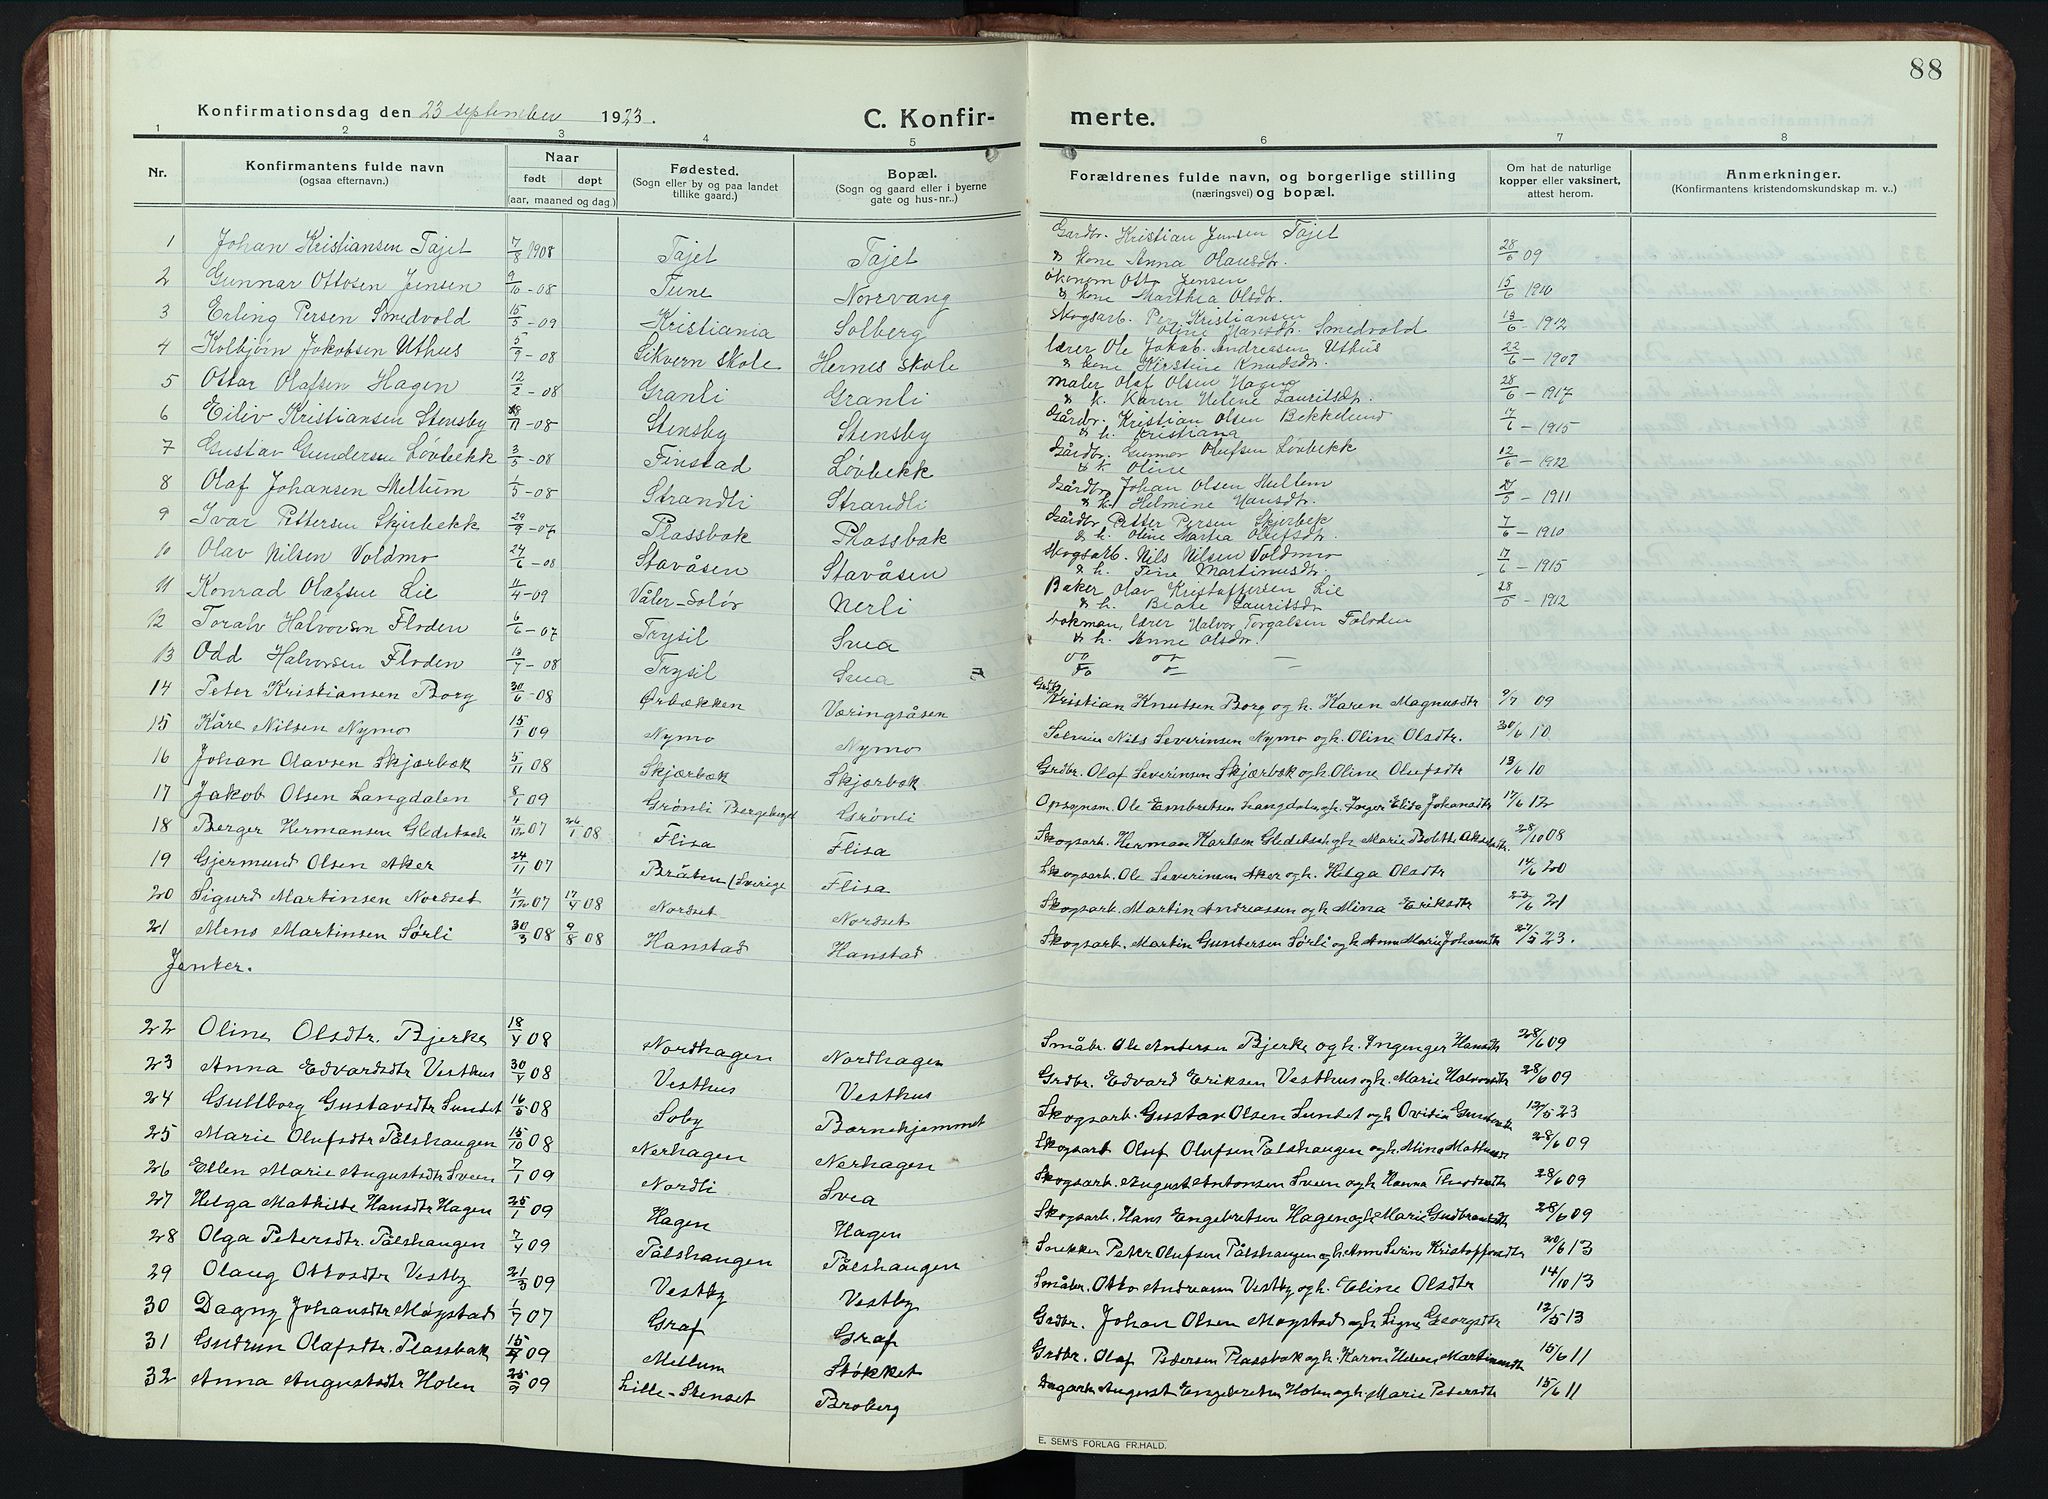 88
Konfirmationsdag den 23 september 1923.
C. Konfir-
merte.
1 2 3 4 5 6 7 8
Nr.
Konfirmantens fulde navn
(ogsaa efternavn.)
Naar
født døpt
(aar, maaned og dag.)
Fødested.
(Sogn eller by og paa landet
tillike gaard.)
Bopæl.
(Sogn og gaard eller i byerne
gate og hus-nr..)
Forældrenes fulde navn, og borgerlige stilling
(næringsvei) og bopæl.
Om hat de naturlige
kopper eller vaksinert,
attest herom.
Anmerkninger.
(Konfirmantens kristendomskundskap m. v..)
1 Johan Kristiansen Tajet 7/8 1908 Tajet Tajet Gardbr. Kristian Jensen Tajet 28/6 09
& kone Anna Olausdtr.
2 Gunnar Ottosen Jensen 9/10 - 08 Tune Norvang økonom Otto Jensen 15/6 - 1910
& kone Marthea Olsdtr.
3 Erling Persen Smedvold 15/5 - 09 Kristiania Solberg Skogsarb. Per Kristiansen 13/6 - 1912
Oline Hansdtr. Smedvold
4 Kolbjørn Jakobsen Uthus 5/9 - 08 Sikvern skole Hernes skole lærer Ole Jakob Andreasen Uthus 22/6 - 1909
& kone Kirstine Knudsdtr.
5 Ottar Olafsen Hagen 12/2 - 08 Granli Granli maler Olaf Olsen Hagen 28/6 - 1917
& k. Karen Helene Lauritsdtr.
6 Eiliv Kristiansen Stensby 18/11 - 08 Stensby Stensby Gårdbr. Kristian Olsen Bekkelund 17/6 - 1915
& h. Kristiana
7 Gustav Gundersen Løvbekk 3/5 - 08 Finstad Løvbekk Gårdbr. Gunnar Olufsen Løvbekk 12/6 - 1922
& k Oline
8 Olaf Johansen Meltum 1/5 - 08 Strandli Strandli Gårdbr. Johan Olsen Mellem /5 - 1911
& h. Helmine Hansdtr.
9 Ivar Pettersen Skjirbekk 29/9 - 07 Plassbak Plassbak Gårdbr. Petter Persen Skjirbek 7/6 - 1910
& h. Oline Martia Olufsdtr.
10 Olav Nilsen Voldmo 24/6 - 08 Stavåsen Stavåsen Skogsarb. Nils Nilsen Voldmo 17/6 - 1915
& h. Tine Martinusdtr.
11 Konrad Olafsen Lie 4/4 - 09 Våler-Solør Nerli Baker Olav Kristoffersen Lie 28/5 - 1912
& h. Beate Lauritsdtr
12 Toralv Halvorsen Floden 6/6 - 07 Trysil Svea bokman, lærer Halvor Torgalsen Foloden
& h. Anne Olsdtr.
13 Odd Halvorsen Floden 13/7 - 08 Trysil Svea
14 Peter Kristiansen Borg 30/6 - 08 Ørbækken Væringsåsen Grdbr Kristian Knutsen Borg og h. Karen Magnusdtr 9/7 09
15 Kåre Nilsen Nymo 15/1 09 Nymo Nymo Selveier Nils Severinsen Nymo og h. Oline Olsdtr. 30/6 10
16 Johan Olavsen Skjærbæk 5/11 08 Skjærbæk Skjærbæk Grdbr. Olaf Severinsen Skjærbæk og h. Oline Olufsdtr 13/6 10
17 Jakob Olsen Langdalen 8/1 09 Grønli Grønli Opsynsm. Ole Embretsen Langdalen og h. Inger Elise Johansdtr 17/6 12
18 Berger Hermansen Gleditsch 4/12 07 26/1 08 Flisa Flisa Skogsarb. Herman Karlsen Gleditsch og h. Marie Bolette 28/10 08
19 Gjermund Olsen Aker 24/11 07 Bråten (Sverige Flisa Skogsarb. Ole Severinsen Aker og h. Helga Olsdtr 14/6 20
20 Sigurd Martinsen Nordset 4/12 07 17/4 08 Nordset Nordset Skogsarb. Martin Andreassen og h. Mina Eriksdtr 22/6 21
21 Mens Martinsen Sørli 30/3 08 9/8 08 Hanstad Hanstad Skogsarb. Martin Guntersen Sørli og h. Anne Marie Johansdtr 27/5 23.
Jenter.
22 Oline Olsdtr. Bjerke 18/4 08 Nordhagen Nordhagen Småbr. Ole Andersen Bjerke og h. Ingenger Hansdtr 28/6 09
23 Anna Edvardsdtr Vesthus 30/4 08 Vesthus Vesthus Grdbr. Edvard Eriksen Vesthus og h. Marie Halvorsdtr 28/6 09
24 Gullborg Gustavsdtr Sundet 16/5 08 Soby Barnehjemmet Skogsarb. Gustav Olsen Sundet og h Ovidia 12/5 23
25 Marie Olufsdtr Pålshaugen 15/10 08 Nerhagen Nerhagen Skogsarb Oluf Olufsen Pålshaugen og h. Mina 28/6 09
26 Ellen Marie Augustsdtr Sveen 7/1 09 Nordli Svea Skogsarb. August Antonsen Sveen og h Hanna 28/6 09
27 Helga Mathilde Hansdtr Hagen 25/1 09 Hagen Hagen Skogsarb. Hans Engebretsen Hagen og h Marie Gudbrandsdtr 28/6 09
28 Olga Petersdtr. Pålshaugen 7/4 09 Pålshaugen Pålshaugen Snekker Peter Olufsen Pålshaugen og h. Anne Serine Kristoffersdtr 20/6 13
29 Olaug Ottosdtr Vestby 21/3 09 Vestby Vestby Småbr. Otto Andreassen Vestby og h. Eline Olsdtr 14/10 13
30 Dagny Johansdtr Mogstad 1/7 07 Graf Graf Grdbr. Johan Olsen Mogstad og h. Signe Georgsdtr 12/5 13
31 Gudrun Olafsdtr. Plassbak 15/4 09 Mellum Støkket Grdbr. Olaf Pedersen Plassbak og h. Karen Helene Martinusdtr 15/6 11
32 Anna Augustsdtr Holen 25/9 09 Lille-Stenset Broberg Dagarb. August Engebretsen Holen og h. Marie Petersdtr 15/6 11
E. SEM'S FORLAG FR.HALD.